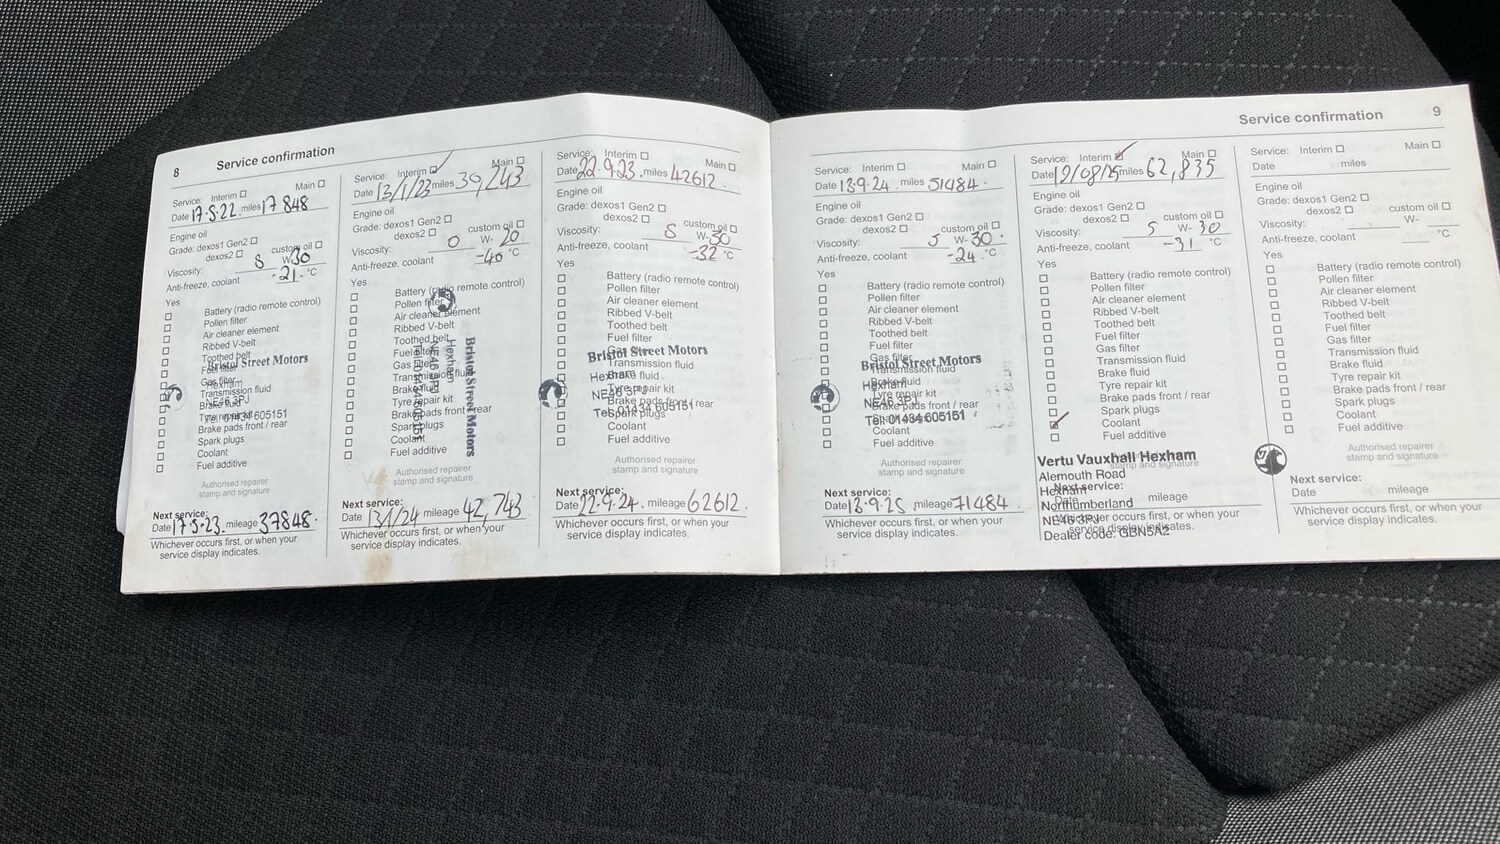 8 Service confirmation
Service: Interim ☐ Main ☐
Date 17.5.22. miles 17 848
Engine oil
Grade: dexos1 Gen2 ☐
dexos2 ☐ custom oil ☐
Viscosity: 5 W- 30
Anti-freeze, coolant -21. °C
Yes
☐ Battery (radio remote control)
☐ Pollen filter
☐ Air cleaner element
☐ Ribbed V-belt
☐ Toothed belt
☐ Fuel filter
☐ Gas filter
☐ Transmission fluid
☐ Brake fluid
☐ Tyre repair kit
☐ Brake pads front / rear
☐ Spark plugs
☐ Coolant
☐ Fuel additive
Bristol Street Motors
Hexham
NE46 3PJ
Tel: 01434 605151
Authorised repairer
stamp and signature
Next service:
Date 17.5.23. mileage 37848.
Whichever occurs first, or when your
service display indicates.
Service: Interim ☑ Main ☐
Date 13/1/23 miles 39,243
Engine oil
Grade: dexos1 Gen2 ☐
dexos2 ☐ custom oil ☐
Viscosity: 0 W- 20
Anti-freeze, coolant -40 °C
Yes
☐ Battery (radio remote control)
☐ Pollen filter
☐ Air cleaner element
☐ Ribbed V-belt
☐ Toothed belt
☐ Fuel filter
☐ Gas filter
☐ Transmission fluid
☐ Brake fluid
☐ Tyre repair kit
☐ Brake pads front / rear
☐ Spark plugs
☐ Coolant
☐ Fuel additive
Bristol Street Motors
Hexham
NE46 3PJ
Tel: 01434 605151
Authorised repairer
stamp and signature
Next service:
Date 13/1/24 mileage 42,743
Whichever occurs first, or when your
service display indicates.
Service: Interim ☐ Main ☐
Date 22.9.23. miles 42612.
Engine oil
Grade: dexos1 Gen2 ☐
dexos2 ☐ custom oil ☐
Viscosity: 5 W- 30
Anti-freeze, coolant -32 °C
Yes
☐ Battery (radio remote control)
☐ Pollen filter
☐ Air cleaner element
☐ Ribbed V-belt
☐ Toothed belt
☐ Fuel filter
☐ Gas filter
☐ Transmission fluid
☐ Brake fluid
☐ Tyre repair kit
☐ Brake pads front / rear
☐ Spark plugs
☐ Coolant
☐ Fuel additive
Bristol Street Motors
Hexham
NE46 3PJ
Tel: 01434 605151
Authorised repairer
stamp and signature
Next service:
Date 22.9.24. mileage 62612
Whichever occurs first, or when your
service display indicates.
Service confirmation 9
Service: Interim ☐ Main ☐
Date 13.9.24. miles 51484.
Engine oil
Grade: dexos1 Gen2 ☐
dexos2 ☐ custom oil ☐
Viscosity: 5 W- 30.
Anti-freeze, coolant -24. °C
Yes
☐ Battery (radio remote control)
☐ Pollen filter
☐ Air cleaner element
☐ Ribbed V-belt
☐ Toothed belt
☐ Fuel filter
☐ Gas filter
☐ Transmission fluid
☐ Brake fluid
☐ Tyre repair kit
☐ Brake pads front / rear
☐ Spark plugs
☐ Coolant
☐ Fuel additive
Bristol Street Motors
Hexham
NE46 3PJ
Tel: 01434 605151
Authorised repairer
stamp and signature
Next service:
Date 13.9.25. mileage 71484
Whichever occurs first, or when your
service display indicates.
Service: Interim ☑ Main ☐
Date 12/08/25 miles 62,835
Engine oil
Grade: dexos1 Gen2 ☐
dexos2 ☐ custom oil ☐
Viscosity: 5 W- 30
Anti-freeze, coolant -31 °C
Yes
☐ Battery (radio remote control)
☐ Pollen filter
☐ Air cleaner element
☐ Ribbed V-belt
☐ Toothed belt
☐ Fuel filter
☐ Gas filter
☐ Transmission fluid
☐ Brake fluid
☐ Tyre repair kit
☐ Brake pads front / rear
☐ Spark plugs
☑ Coolant
☐ Fuel additive
Vertu Vauxhall Hexham
Alemouth Road
Hexham
Northumberland
NE46 3PJ
Dealer code: GBN5A2
stamp and signature
Next service:
Date mileage
Whichever occurs first, or when your
service display indicates.
Service: Interim ☐ Main ☐
Date miles
Engine oil
Grade: dexos1 Gen2 ☐
dexos2 ☐ custom oil ☐
Viscosity: W-
Anti-freeze, coolant °C
Yes
☐ Battery (radio remote control)
☐ Pollen filter
☐ Air cleaner element
☐ Ribbed V-belt
☐ Toothed belt
☐ Fuel filter
☐ Gas filter
☐ Transmission fluid
☐ Brake fluid
☐ Tyre repair kit
☐ Brake pads front / rear
☐ Spark plugs
☐ Coolant
☐ Fuel additive
Authorised repairer
stamp and signature
Next service:
Date mileage
Whichever occurs first, or when your
service display indicates.